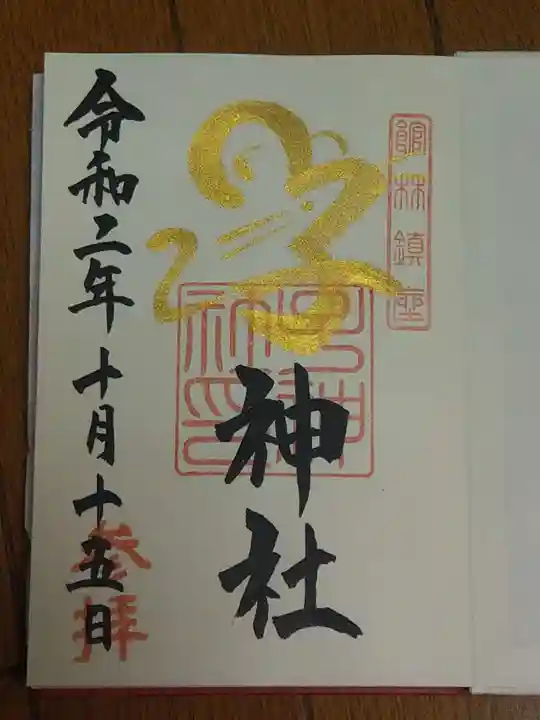 館林鎮座
神社
令和二年十月十五日
参拝